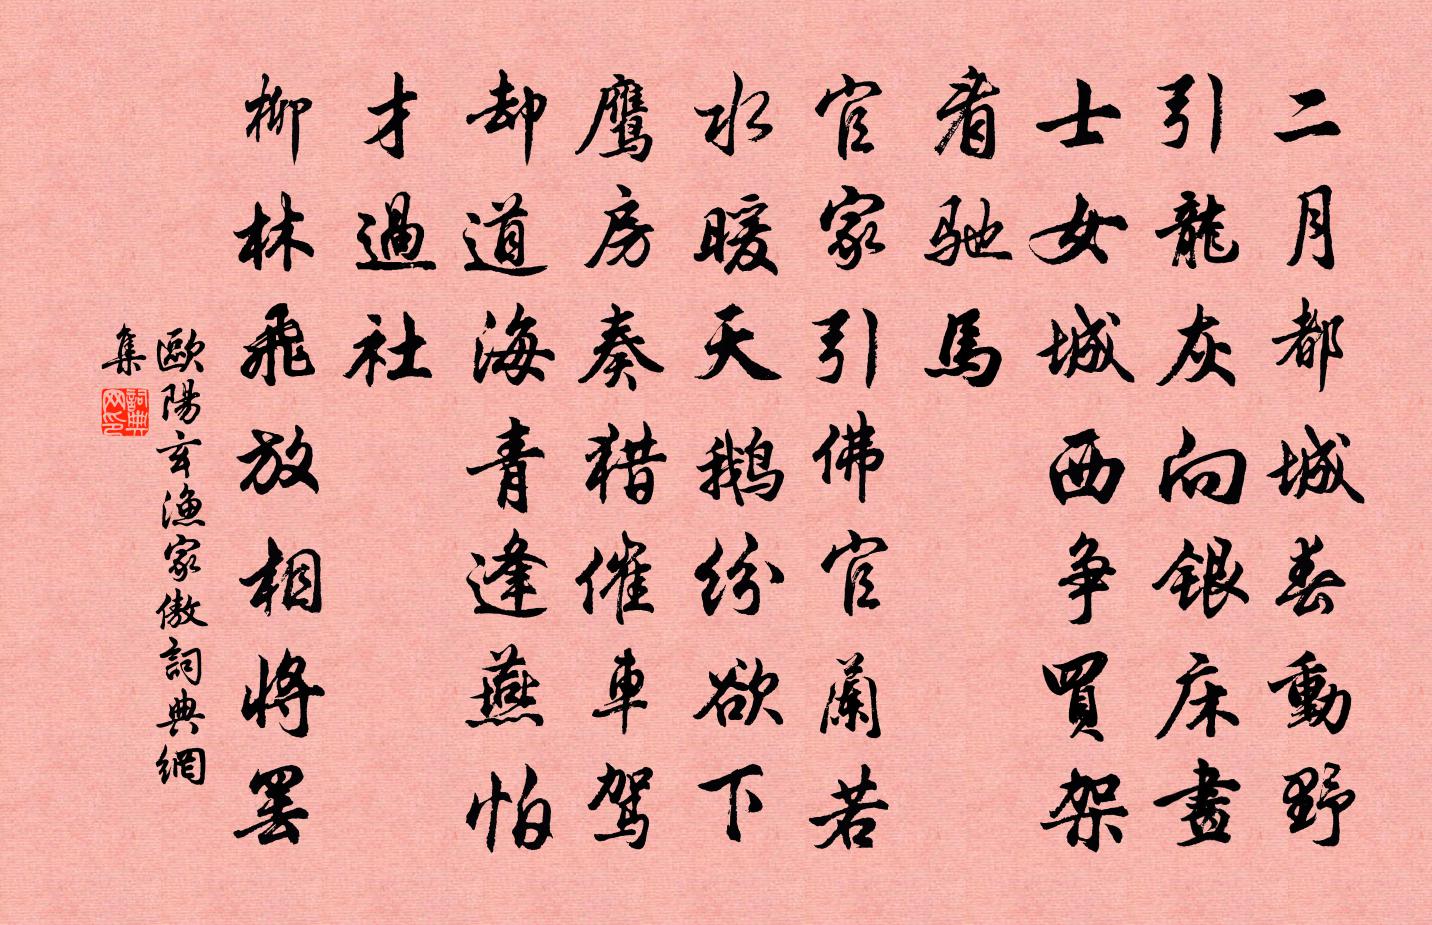 二月都城春動野
引龍灰向銀床畫
士女城西争買架
看馳馬
官家引佛官蘭若
水暖天鹅紛欲下
鷹房奏猎催車駕
却道海青逢燕怕
才過社
柳林飛放相將罢
歐陽玄漁家傲詞典網
集
詞典
网印